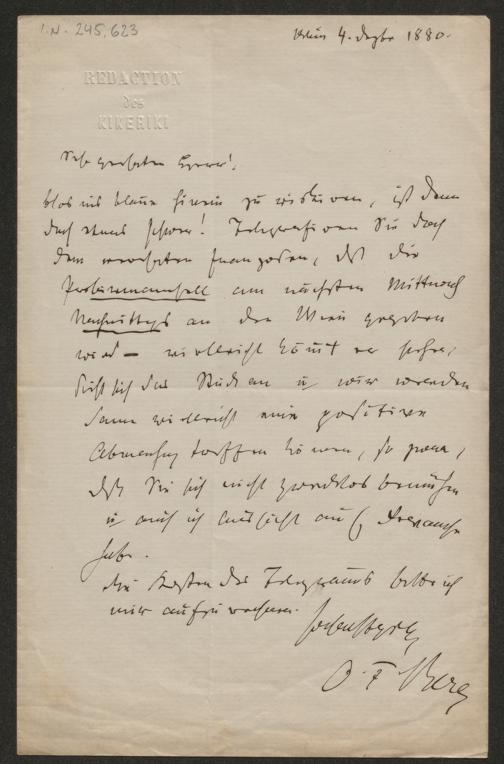 I.N. 245.623
Wien 4. Dezbr 1880.
REDACTION
des
KIKERIKI
Sehr geehrter Herr!
blos ins blaue hinein zu , ist denn
doch etwas schwer! Telegrafiren Sie doch
dem verehrten Franzosen, daß die
am nächsten Mittwoch
Nachmittags an der Wien gegeben
wird — vielleicht kömt er hieher,
sieht sich das Stück an u wir werden
dann vielleicht eine positive
Abmachung treffen können, so zwar,
daß Sie sich nicht zwecklos bemühen
u auch ich Aussicht auf
habe.
Die Kosten des Telegramms bitte ich
mir aufzurechnen.
Hochachtungsvoll
O. F. Berg